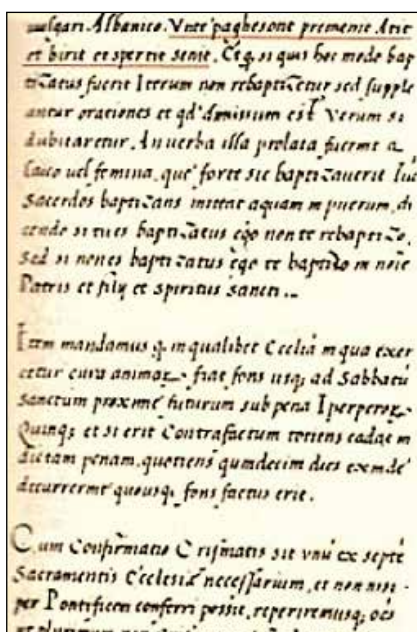 vulgari Albanico. Vnte paghesont premenit Atit
et birit et spertit senit. Et q. si quis hoc modo bap
tizatus fuerit Iterum non rebaptizetur sed supple
antur orationes et qd' dimissum est. Verum si
dubitaretur. An verba illa prolata fuerint a
laico vel femina, que forte sic baptizauerit Tuc
Sacerdos baptizans mittat aquam in puerum, di
cendo si tu es baptizatus ego non te rebaptizo.
Sed si non es baptizatus ego te baptizo in noie
Patris et filij et Spiritus Sancti..
Item mandamus q. in qualibet Ecclia in qua exer
cetur cura animar. fiat fons usq. ad Sabbatu
Sanctum proxime futurum sub pena Iperperor.
Quinq; et si erit Contrafactum totiens eadae in
dictam penam, quotiens quindecim dies exinde
decurrerint quousq. fons factus erit.
Cum Confirmatio Crismatis sit unu ex septe
Sacramentis Ecclesiæ necessarium, et non nisi
per Pontificem conferri possit, reperiremusq; oes
et plurimum non